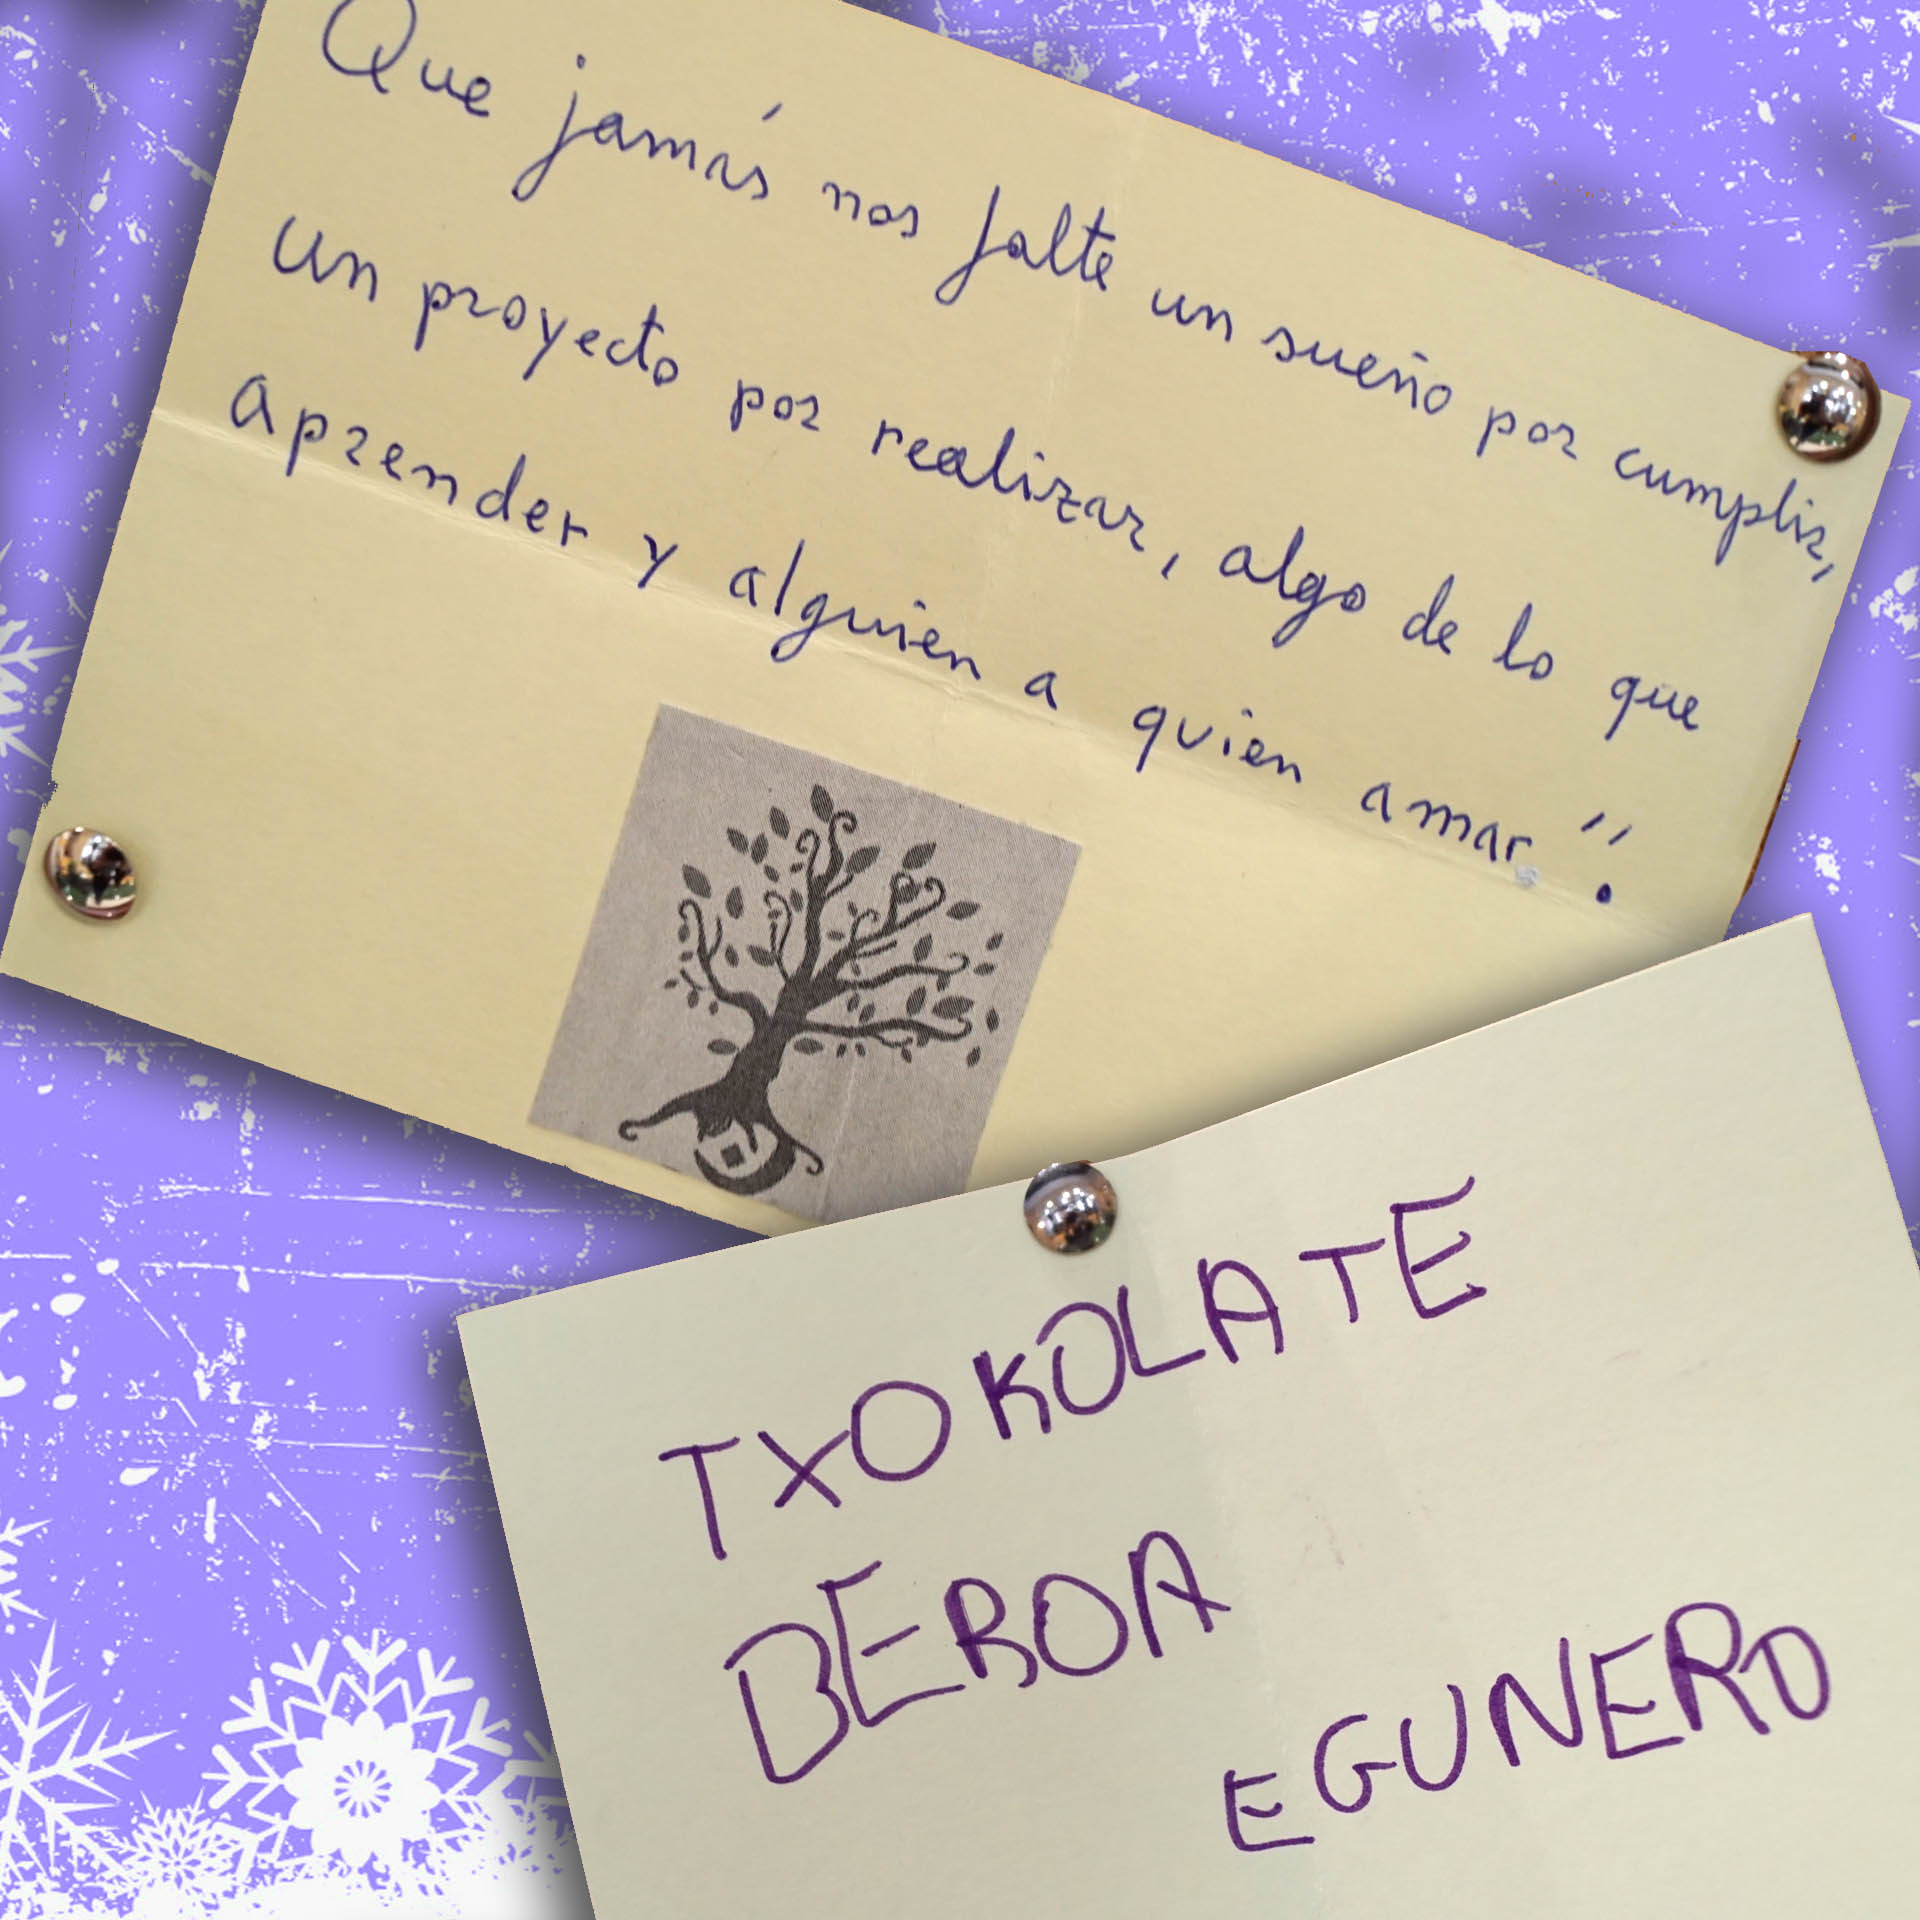 Que jamás nos falte un sueño por cumplir,
un proyecto por realizar, algo de lo que
aprender y alguien a quien amar".
TXOKOLATE
BEROA
EGUNERO